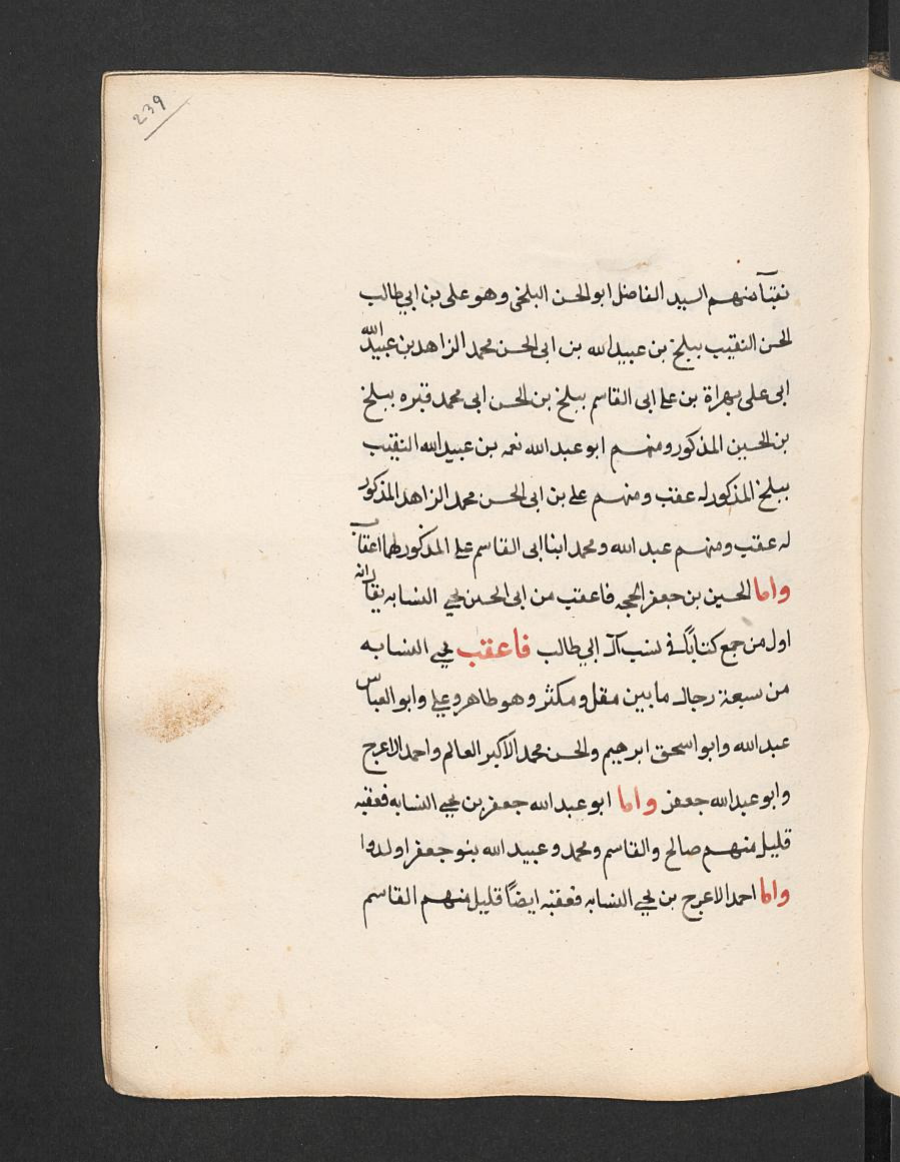 239
نقبآ منهم السيد الفاضل ابو الحسن البلخى وهو على بن ابي طالب
الحسن النقيب ببلخ بن عبيد الله بن ابى الحسن محمد الزاهد بن عبيد الله
ابى على بهراة بن على ابى القاسم ببلخ بن الحسن ابى محمد قبره ببلخ
بن الحسين المذكور ومنهم ابو عبد الله نعمه بن عبيد الله النقيب
ببلخ المذكور له عقب ومنهم على بن ابى الحسن محمد الزاهد المذكور
له عقب ومنهم عبد الله ومحمد ابنا ابى القاسم على المذكور لهما اعقاب
واما الحسين بن جعفر الحجه فاعقب من ابى الحسن يحيى النسابه يقال انه
اول من جمع كتاباً فى نسب آل ابي طالب فاعقب يحيى النسابه
من سبعة رجال ما بين مقل ومكثر وهو طاهر وعلى وابو العباس
عبد الله وابو اسحق ابرهيم والحسن محمد الاكبر العالم واحمد الاعرج
وابو عبد الله جعفر واما ابو عبد الله جعفر بن يحيى النسابه فعقبه
قليل منهم صالح والقاسم ومحمد وعبيد الله بنو جعفر اولدوا
واما احمد الاعرج بن يحيى النسابه فعقبه ايضاً قليل منهم القاسم